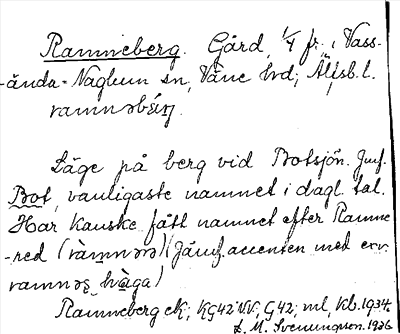 Ramneberg. Gård, 1/4 fr. i Vass-
-ända-Naglum sn, Väne hd; Älfsb.l.
ramnəbǽrj.
Läge på berg vid Botsjön. Jmf.
Bot, vanligaste namnet i dagl. tal.
Har kanske fått namnet efter Ramne
-red (ràmnərə) (Jämf. accenten med
ramnəs hàga)
Ramneberg ek; KG42 VV, G42; ml, kb. 1934.
L. M. Svenungson. 1936